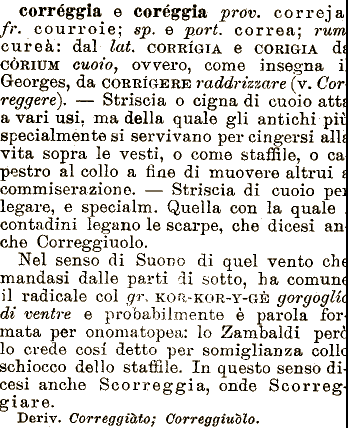 corréggia e coréggia prov. correja
fr. courroie; sp. e port. correa; rum
cureà: dal lat. CORRÍGIA e CORIGIA da
CÒRIUM cuoio, ovvero, come insegna i
Georges, da CORRÍGERE raddrizzare (v. Cor
reggere). — Striscia o cigna di cuoio atta
a vari usi, ma della quale gli antichi più
specialmente si servivano per cingersi alla
vita sopra le vesti, o come staffile, o ca
pestro al collo a fine di muovere altrui a
commiserazione. — Striscia di cuoio pei
legare, e specialm. Quella con la quale
contadini legano le scarpe, che dicesi an
che Correggiuolo.
Nel senso di Suono di quel vento che
mandasi dalle parti di sotto, ha comune
il radicale col gr. KOR-KOR-Y-GÈ gorgoglio
di ventre e probabilmente è parola for-
mata per onomatopea: lo Zambaldi però
lo crede cosí detto per somiglianza collo
schiocco dello staffile. In questo senso di-
cesi anche Scorreggia, onde Scorreg-
giare.
Deriv. Correggiàto; Correggiuòlo.